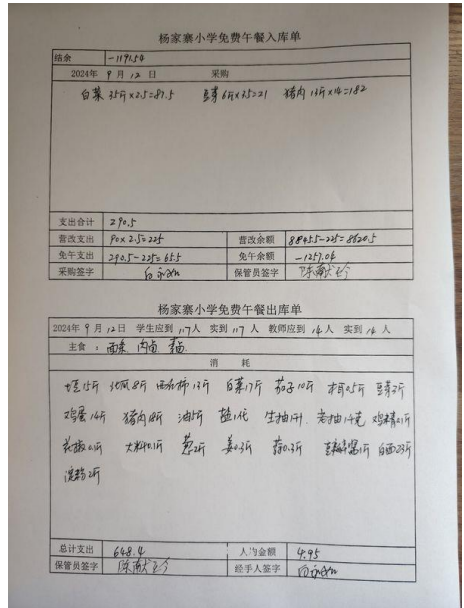 杨家寨小学免费午餐入库单
结余 -1191.54
2024年 9月 12日 采购
白菜 35斤×2.5=87.5 豆芽 6斤×3.5=21 猪肉 13斤×14=182
支出合计 290.5
营改支出 90×2.5=225 营改余额 8845.5-225=8620.5
免午支出 290.5-225=65.5 免午余额 -1257.04
采购签字 保管员签字
杨家寨小学免费午餐出库单
2024年 9月 12日 学生应到 117人 实到 117人 教师应到 14人 实到 14人
主食:
消 耗
土豆15斤 北瓜8斤 西红柿13斤 白菜17斤 茄子10斤 木耳0.5斤 豆芽3斤
鸡蛋14斤 猪肉18斤 油5斤 盐1代 生抽1斤 老抽14克 鸡精0.1斤
花椒0.1斤 大料0.1斤 葱2斤 姜0.3斤 蒜0.3斤 豆瓣酱1斤 白面23斤
淀粉2斤
总计支出 648.4 人均金额 4.95
保管员签字 经手人签字